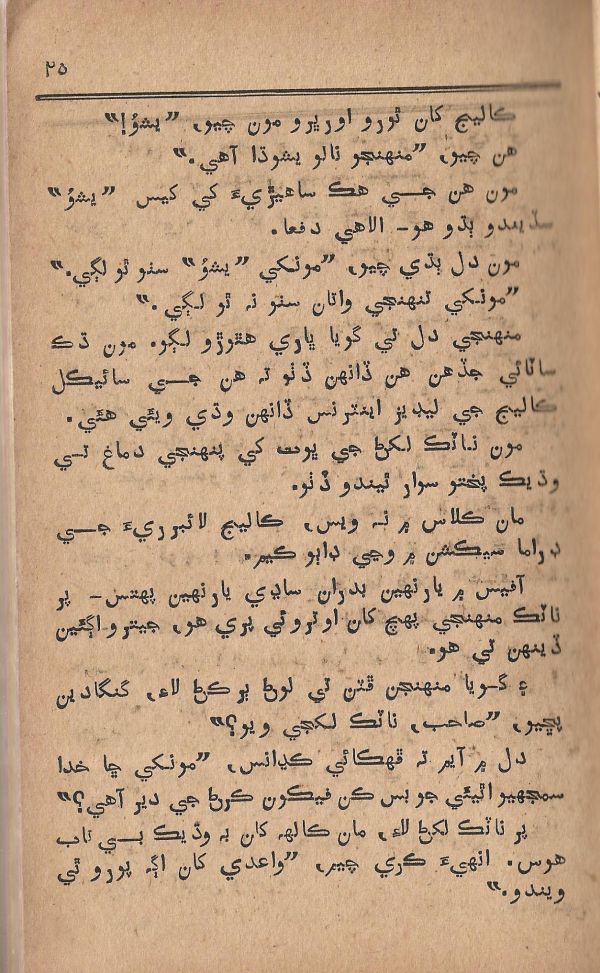 ۲۵
ڪاليج کان ٿورو اورڀرو مون چيو، ”يشوُ!“
هن چيو، ”منهنجو نالو يشوڌا آهي.“
مون هن جي هڪ ساهيڙيءَ کي کيس ”يشوُ“
سڏيندو ٻڌو هو- الاهي دفعا.
مون دل ٻڌي چيو، ”مونکي ”يشوُ“ سٺو ٿو لڳي.“
”مونکي تنهنجي واتان سٺو نه ٿو لڳي.“
منهنجي دل تي گويا ڀاري هٿوڙو لڳو. مون ڌڪ
ساٽائي جڏهن هن ڏانهن ڏٺو ته هن جي سائيڪل
ڪاليج جي ليڊيز اينٽرنس ڏانهن وڌي ويئي هئي.
مون ناٽڪ لکڻ جي ڀوت کي پنهنجي دماغ تي
وڌيڪ پختو سوار ٿيندو ڏٺو.
مان ڪلاس ۾ نه ويس، ڪاليج لائبرريءَ جي
ڊراما سيڪشن ۾ وڃي ڊاٻو ڪيم.
آفيس ۾ يارنهين بدران ساڍي يارنهين پهتس- پر
ناٽڪ منهنجي پهچ کان اوتروئي پري هو، جيترو اڳئين
ڏينهن تي هو.
۽ گويا منهنجن ڦٽن تي لوڻ ٻرڪڻ لاءِ، گنگادين
پڇيو، ”صاحب، ناٽڪ لکجي ويو؟“
دل ۾ آيم ته ڦهڪائي ڪڍانس، ”مونکي ڇا خدا
سمجهيو اٿيئي جو بس ڪن فيڪون ڪرڻ جي دير آهي؟“
پر ناٽڪ لکڻ لاءِ، مان ڪالهه کان به وڌيڪ بي تاب
هوس. انهيءَ ڪري چيم، ”واعدي کان اڳه پورو ٿي
ويندو.“